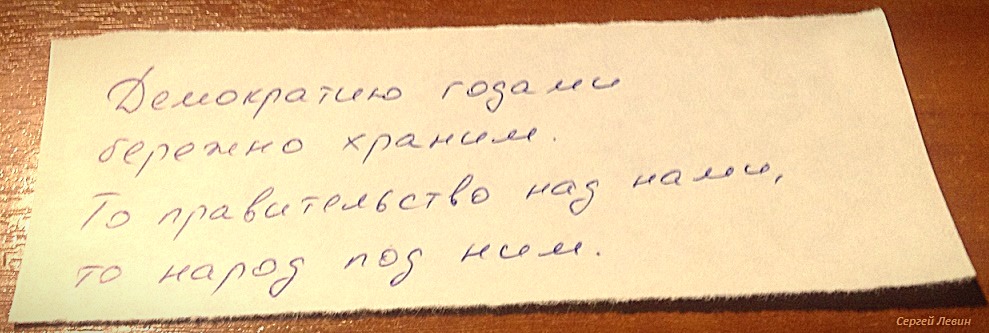 Демократию годами
бережно храним.
То правительство над нами,
то народ под ним.
Сергей Левин